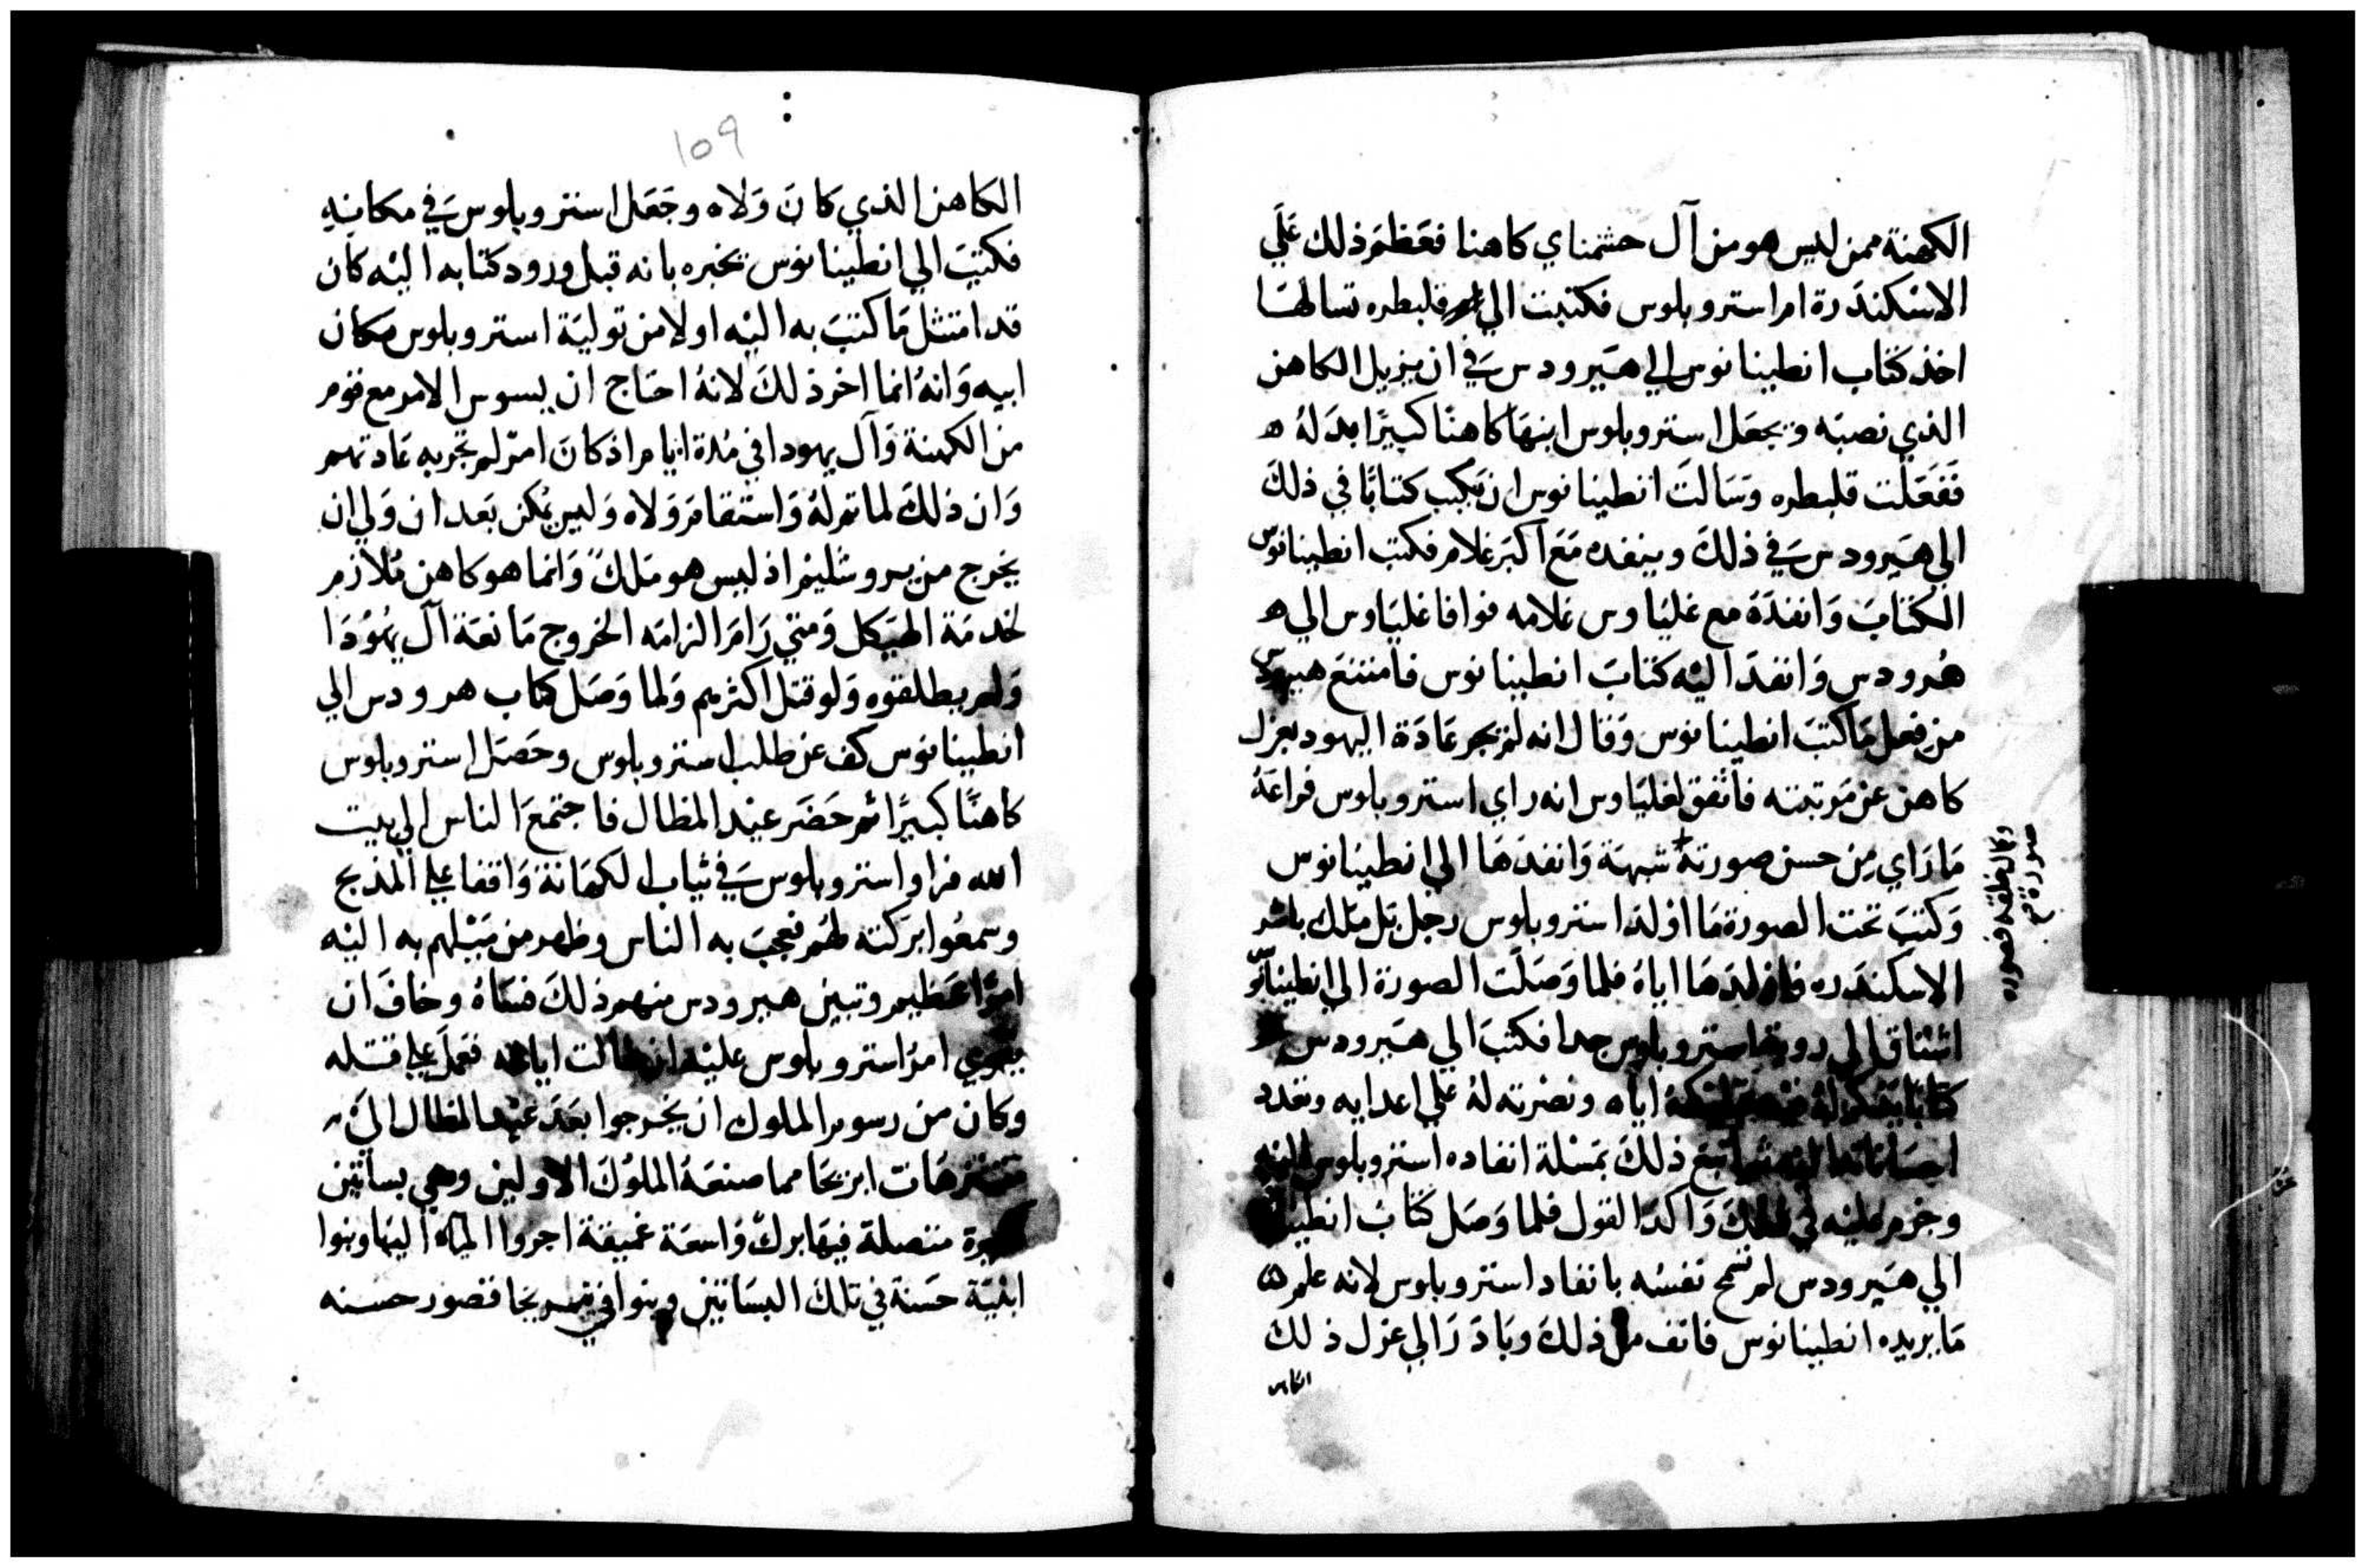 الكهنة ممن ليس هو من آل حشمناي كاهنا فعَظمَ ذلك عَلَي
الاسْكندَرة ام استروبلوس فكتبت الي قلبطره تسالهَا
اخذ كتاب انطينانوس الي هيرودس في ان يزيل الكاهن
الذي نصبَه ويجعَل استروبلوس ابنهَا كاهنًا كبيرًا بدَلهُ ه
ففعَلت قلبطره وسَالتَ انطينانوس ان يكتب كتابًا في ذلكَ
الي هيرودس في ذلكَ وينفده مَعَ اكبَر غلام فكتب انطينانوس
الكتابَ وَانفدَهَ مع غليَاوس غلامه فوافا غليَاوس الي ه
هُرودس وَانفدَ اليْه كتابَ انطينانوس فامتنعَ هيرودس
من فعل مَا كتبَ انطينانوس وَقال انه لم يجر عَادَة اليهود بعزل
كاهن عن مَرتبته فاتفق لغليَاوس انه راي استروبلوس فراعَهُ
مَا رَاي مِن حسن صورتهُ شبهة وَانفدَهَا الي انطينانوس
وكمال خلقه فصوره
صورة
وَكتبَ تحت الصورة مَا اولدَ استروبلوس رجل بَل ملك باشر
الاسكندَره فاولدَهَا اياهُ فلما وَصَلت الصورة الي انطينانو
اشتاق الي روية استروبلوس جدا فكتبَ الي هيرودس
كتابًا يذكر لهُ فيه تمليكهُ اياه ونصْرته لهُ علي اعدايه وتعدد
احسَانه اليه ثم اتبعَ ذلكَ بمَسْلة انفاده استروبلوس اليه
وجزم عليْه في ذلكَ وَاكدَ القول فلما وَصَل كتابُ انطينا
الي هيرودس لم تسمح نفسُه بانفاد استروبلوس لانه علم
مَا يريده انطينانوس فانف من ذلكَ وبَادَرَ الي عزل ذلكَ
الكاهن
109
الكاهن الذي كانَ وَلاه وجَعَل استروبلوس في مكانِهِ
فكتبَ الي انطينانوس يخبره بانه قبل ورود كتابه اليْه كان
قد امتثل مَا كتبَ به اليْه اولا من توليَة استروبلوس مكان
ابيه وَانهُ انما اخر ذلكَ لانهُ احتاج ان يسوس الامر مع قوم
من الكهنة وَآل يهودا في مُدة ايام اذ كانَ امرٌ لم تجر به عَادتهم
وَان ذلكَ لما تم لهُ وَاستقامَ وَلاه وَليس يمكن بَعد ان وَلي ان
يخرج من يروشليم اذ ليس هو مَلكً وَانما هو كاهن مُلازم
لخدمَة الهيَكل وَمتي رَامَ الزامَه الخروج مَانعَة آل يهُوْدَا
وَلم يطلقوه وَلو قتل اكثرهم وَلما وَصَل كتاب هرودس الي
انطينانوس كف عن طلب استروبلوس وحَصَل استروبلوس
كاهنًا كبيرًا ثم حَضَر عيْد المظال فاجتمعَ الناس الي بيت
الله فراوا استروبلوس في ثياب الكهَانة وَاقفا علي المذبح
وسمعُوا بركته لهُم فعجبَ به الناس وظهر من مَيْلهم به اليْه
امرًا عَظيم وتبين هيرودس منهم ذلكَ فسَاهُ وخافَ ان
يقوي امرُ استروبلوس عليْه ان طالت ايامه فعَمل علي قتله
وكان من رسوم الملوك ان يخرجوا بَعدَ عيْد المظال الي
متنزهَات ابريحَا مما صنعَهُ الملوُكَ الاولين وهي بساتين
كبيرة متصلة فيهَا بركٌ وَاسعَة عميقة اجروا المياه اليهَا وبنوا
ابنيَة حَسنة في تلكَ البسَاتين وبنوا في يريحا قصور حسنه